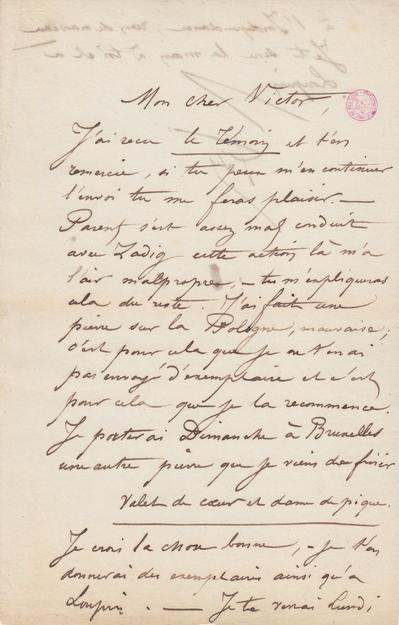 Mon cher Victor,
J'ai reçu le Témoin et t'en
remercie, si tu peux m'en continuer
l'envoi tu me feras plaisir. —
Parent s'est assez mal conduit
avec Zadig cette action là m'a
l'air malpropre, — tu m'expliqueras
cela du reste. J'ai fait une
pierre sur la Pologne, mauvaise;
c'est pour cela que je ne t'en ai
pas envoyé d'exemplaire et c'est
pour cela que je la recommence.
Je porterai Dimanche à Bruxelles
une autre pierre que je viens de finir
Valet de cœur et dame de pique.
Je crois la chose bonne, — je t'en
donnerai des exemplaires ainsi qu'à
— Je te verrai lundi